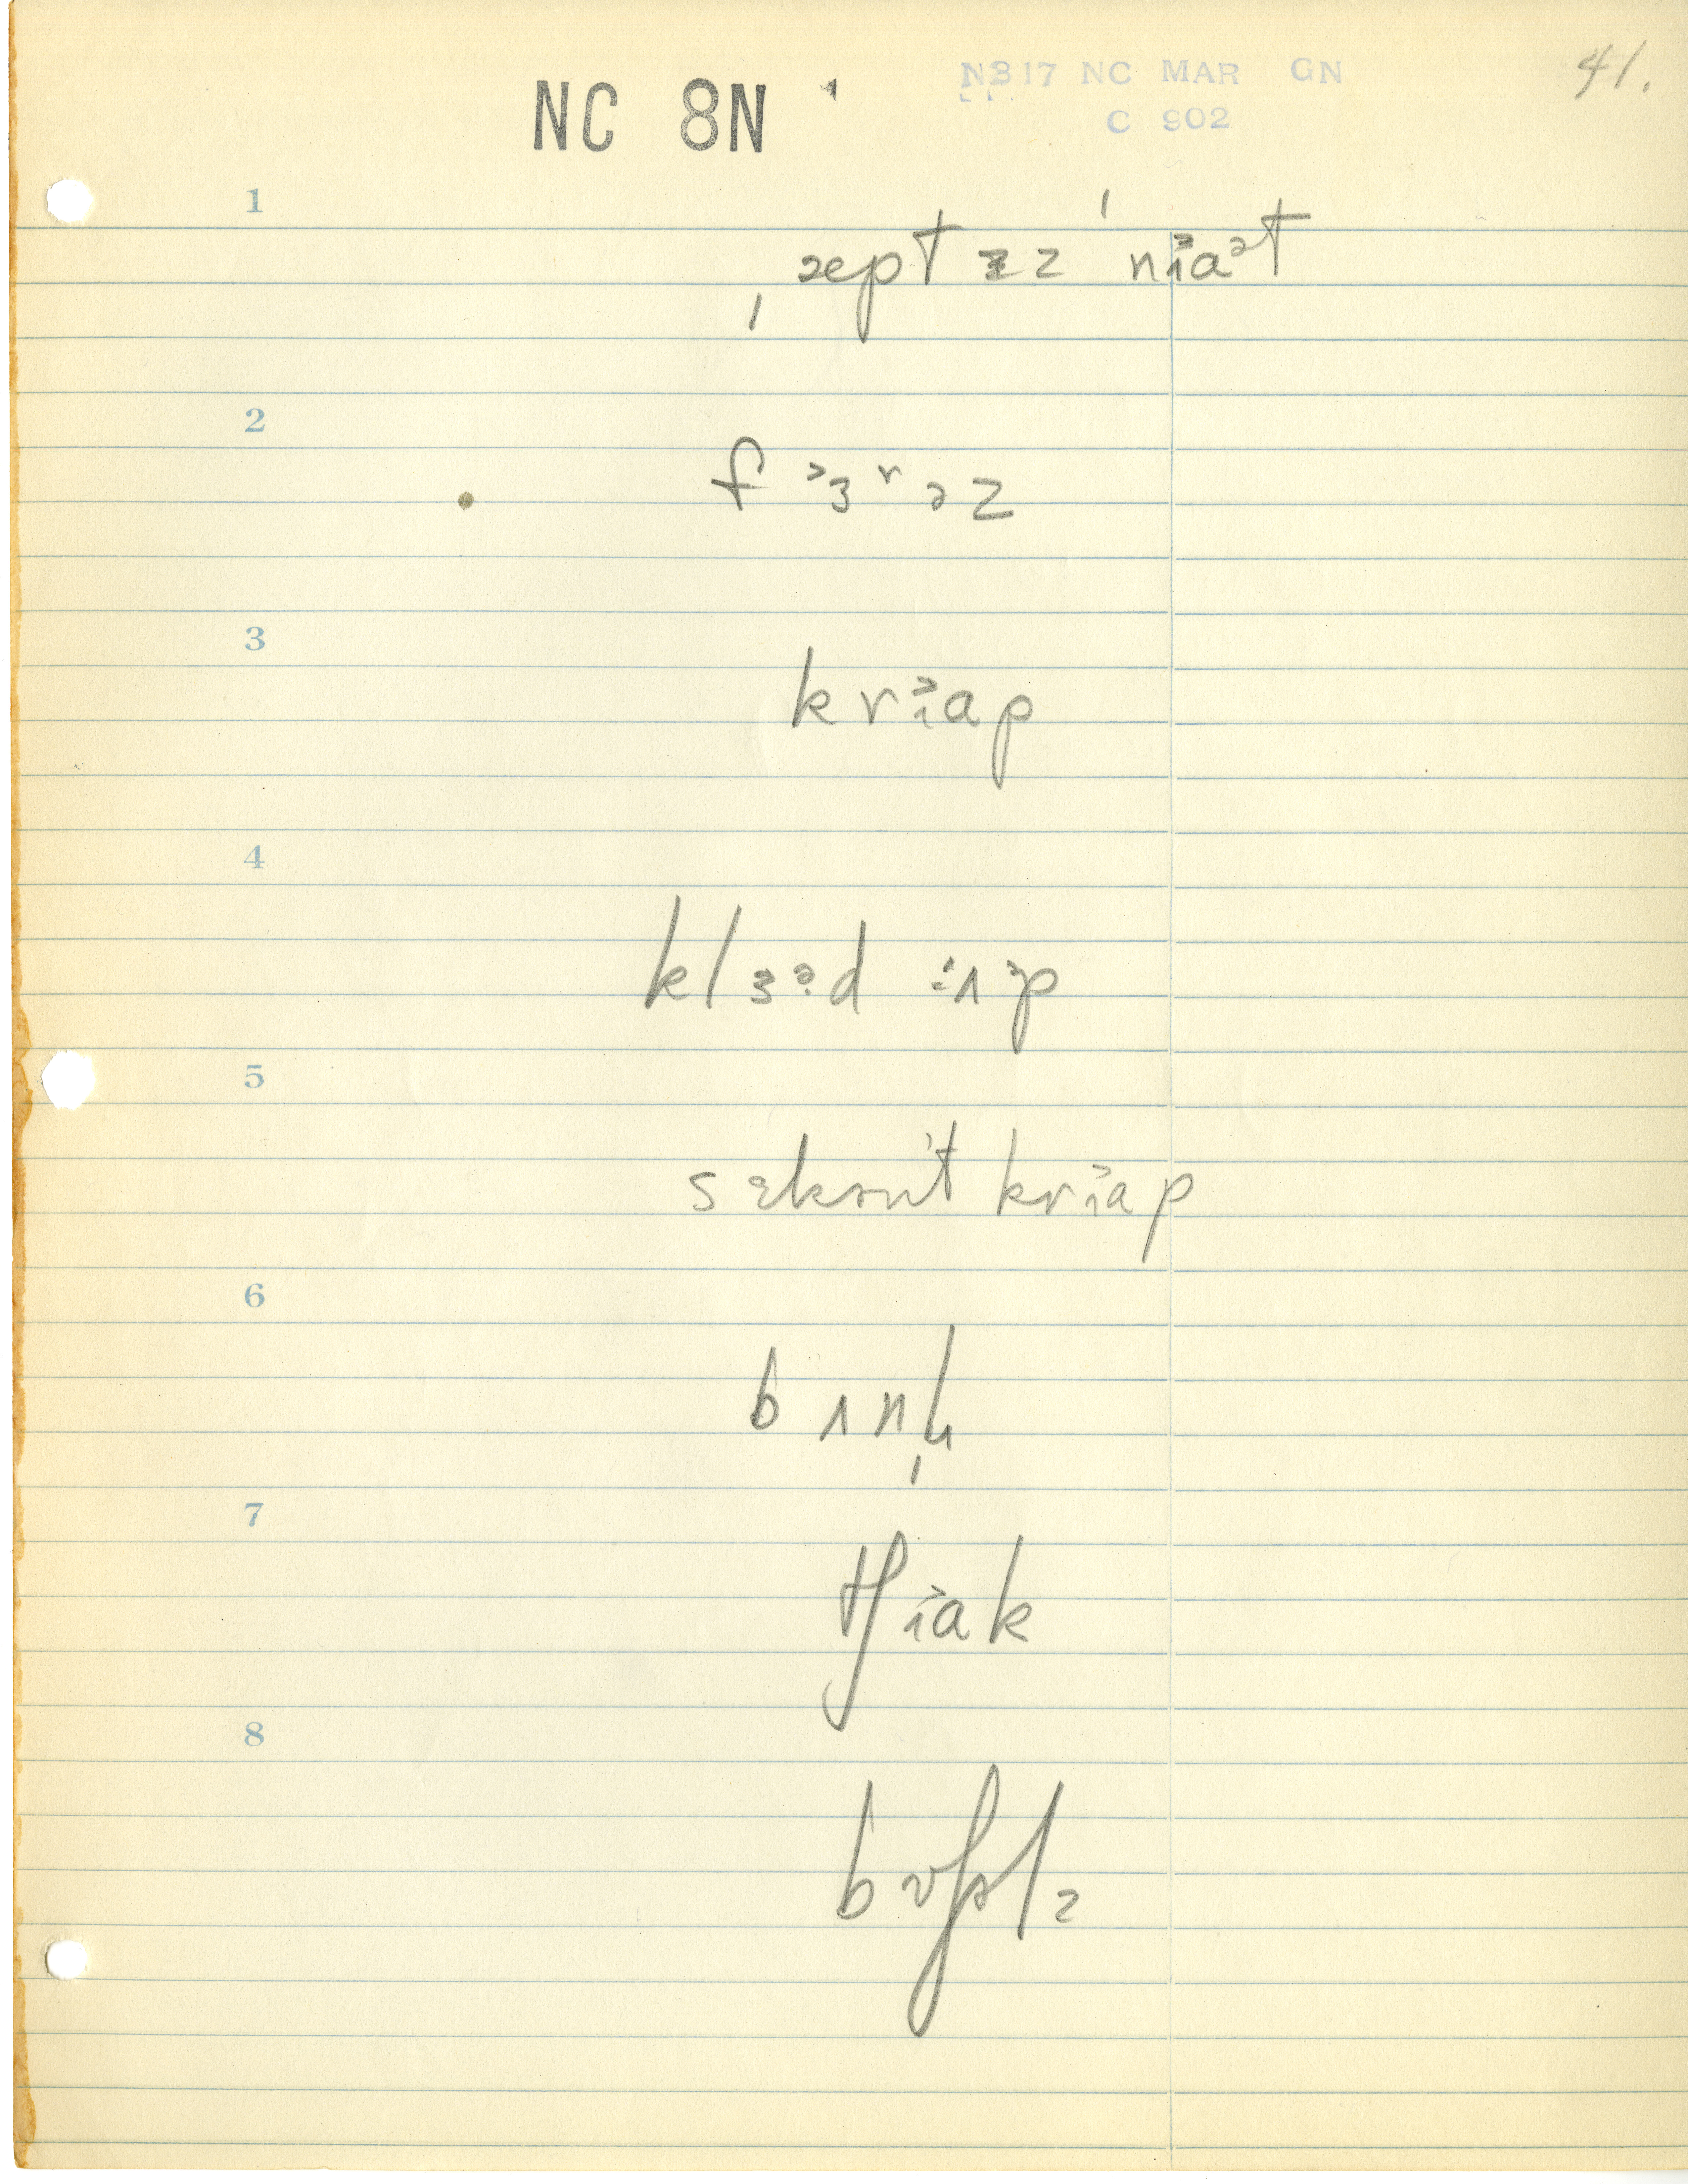 NC 8N
N317 NC MAR GN
C 902
41.
1
ˌæept ɪz ˈnɪ̆aᵊt
2
f ᵊɜʳəz
3
krɪ̆ap
4
klɜᵊd ʌp
5
sekənt krɪ̆ap
6
bʌnʧ
7
ʃɪ̆ak
8
bʊʃəlz